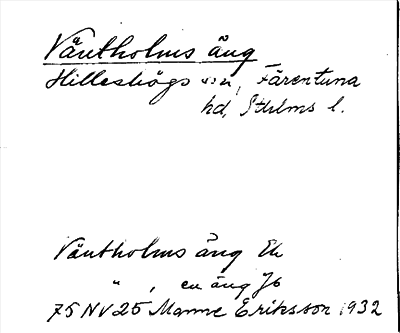 Väntholms äng
Hilleshögs sn, Färentuna
hd, Sthlms l.
Väntholms äng Ek
" , en äng Jb
75 NV 25 Manne Eriksson 1932